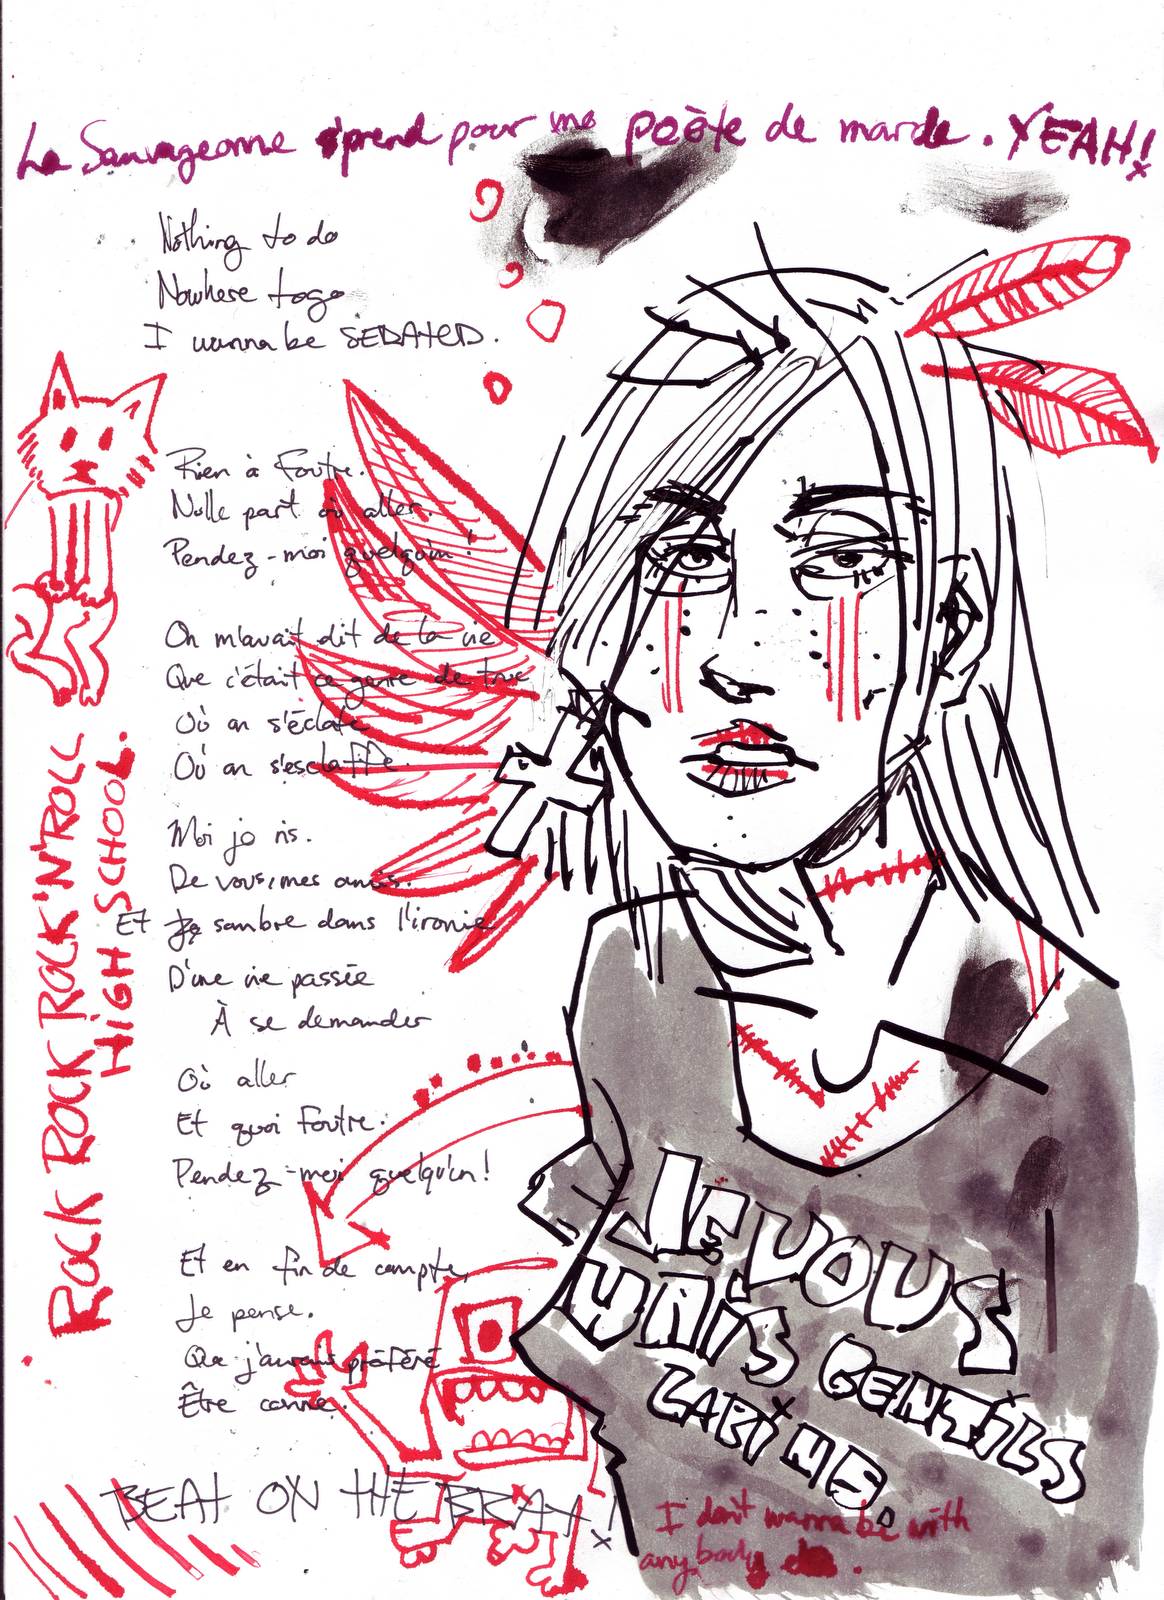 La Sauvageonne s'prend pour une poète de marde. YEAH!
Nothing to do
Nowhere to go
I wanna be SEDATED.
Rien à foutre.
Nulle part où aller.
Pendez-moi quelqu'un!
On m'avait dit de la vie
Que c'était ce genre de truc
Où on s'éclate
Où on s'esclaffe.
Moi je ris.
De vous, mes amis.
Et je sombre dans l'ironie
D'une vie passée
À se demander
Où aller
Et quoi foutre.
Pendez-moi quelqu'un!
Et en fin de compte,
Je pense.
Que j'aurais préféré
Être conne.
BEAT ON THE BRAT!
ROCK ROCK ROCK'N'ROLL
HIGH SCHOOL.
JE VOUS
HAÏS GENTILS
LAPINS.
I don't wanna be with
anybody else.